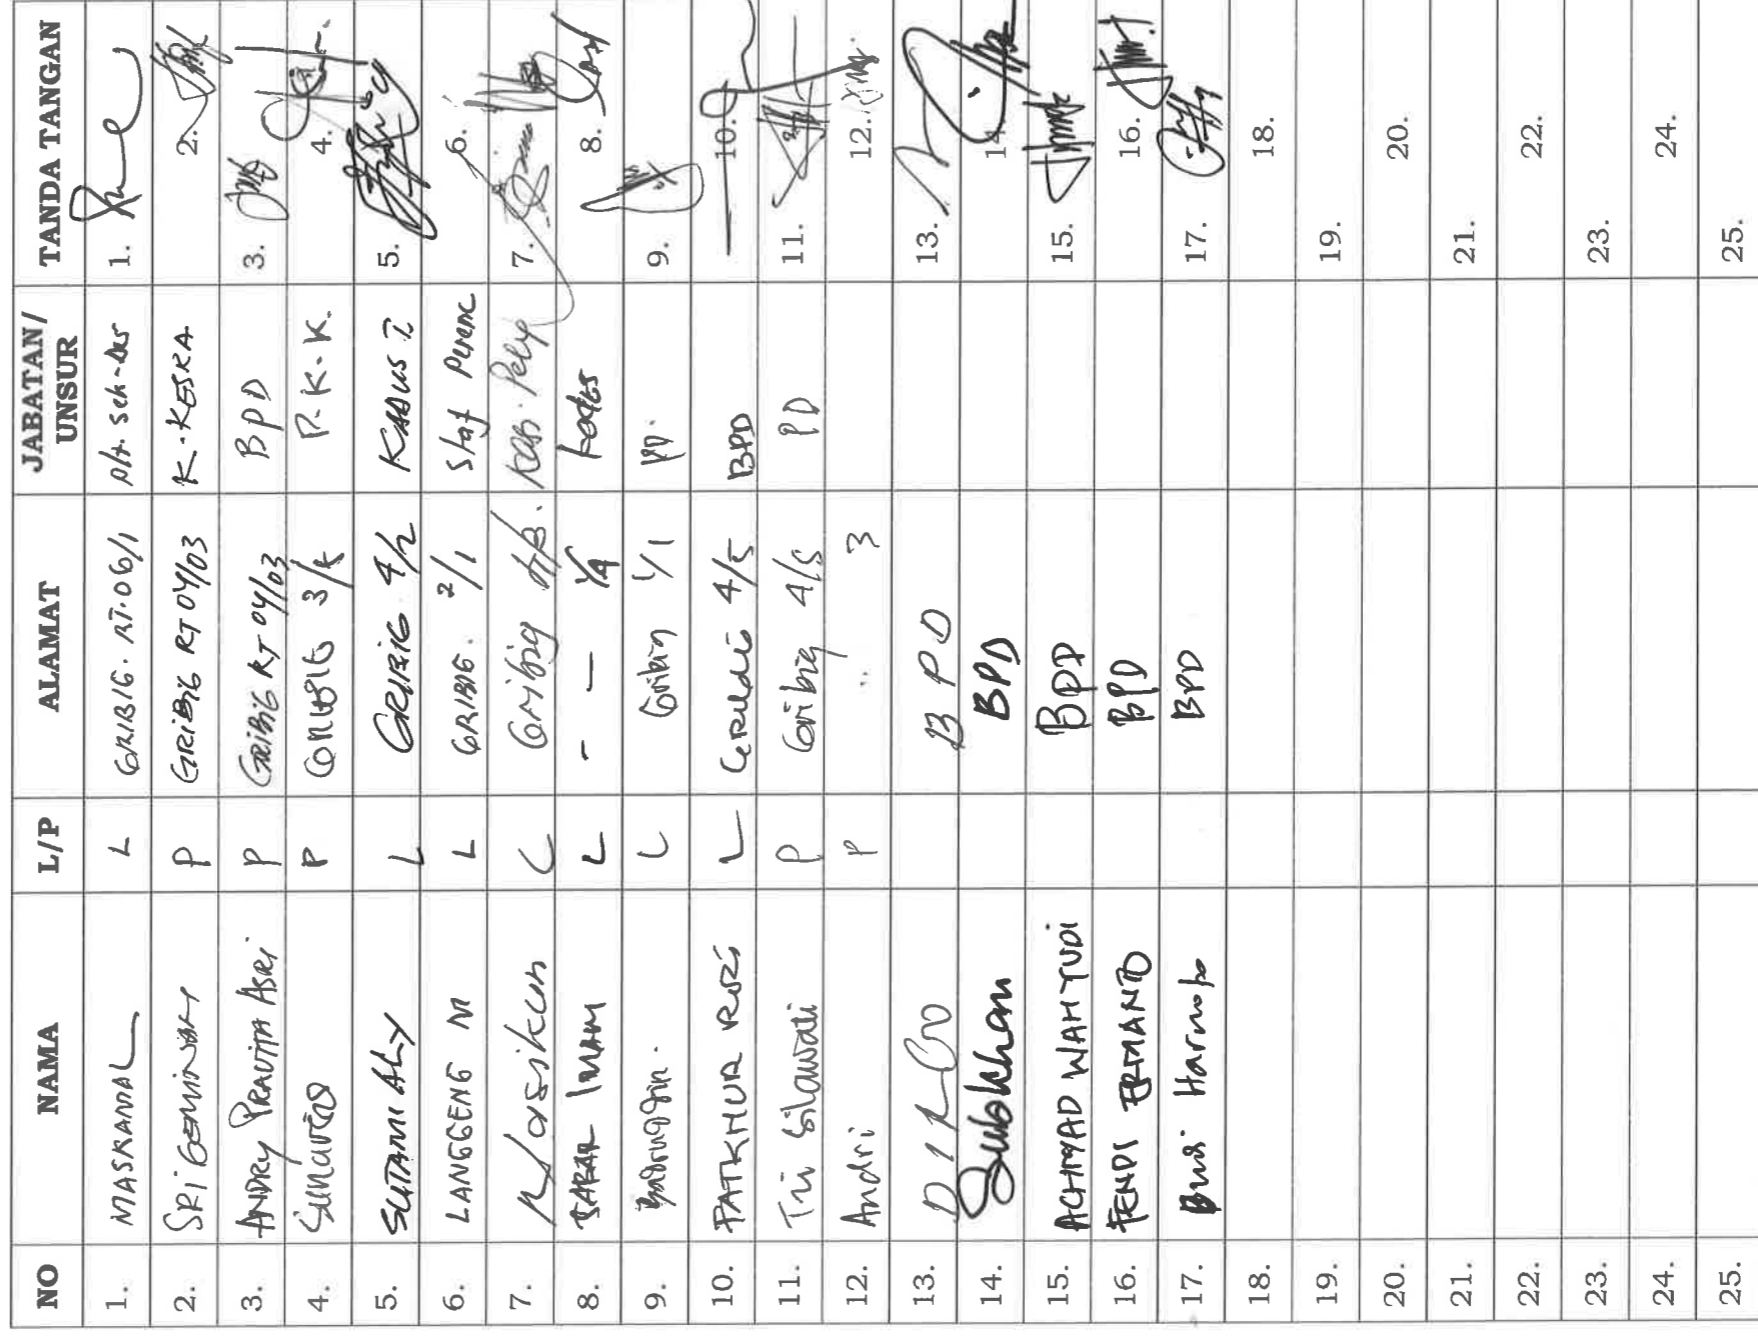 NO NAMA L/P ALAMAT JABATAN/ UNSUR TANDA TANGAN
1. MASKANAL L GRIBIG. RT.06/1 plt. sek-des 1.
2. SRI GEMINSAH P GRIBIG RT 04/03 K-KESRA 2.
3. ANDRY PRAVITA ASRI P GRIBIG RT 04/03 BPD 3.
4. P 3/ P.K.K. 4.
5. SUTAMI ALY L GRIBIG 4/2 KADUS I 5.
6. LANGGENG M L GRIBIG. 2/1 Staf Perenc 6.
7. L Gribig 7.
8. SABAR IMAM L - — Kades 8.
9. L Gribig 1/1 PD. 9.
10. FATKHUR ROZI L 4/5 BPD 10.
11. Tri Silawati P Gribig 4/5 PD 11.
12. Andri P ... 3 12.
13. BPD 13.
14. Subkhan BPD 14.
15. ACHMAD WAHYUDI BPD 15.
16. FENDI ERMANTO BPD 16.
17. Budi BPD 17.
18. 18.
19. 19.
20. 20.
21. 21.
22. 22.
23. 23.
24. 24.
25. 25.